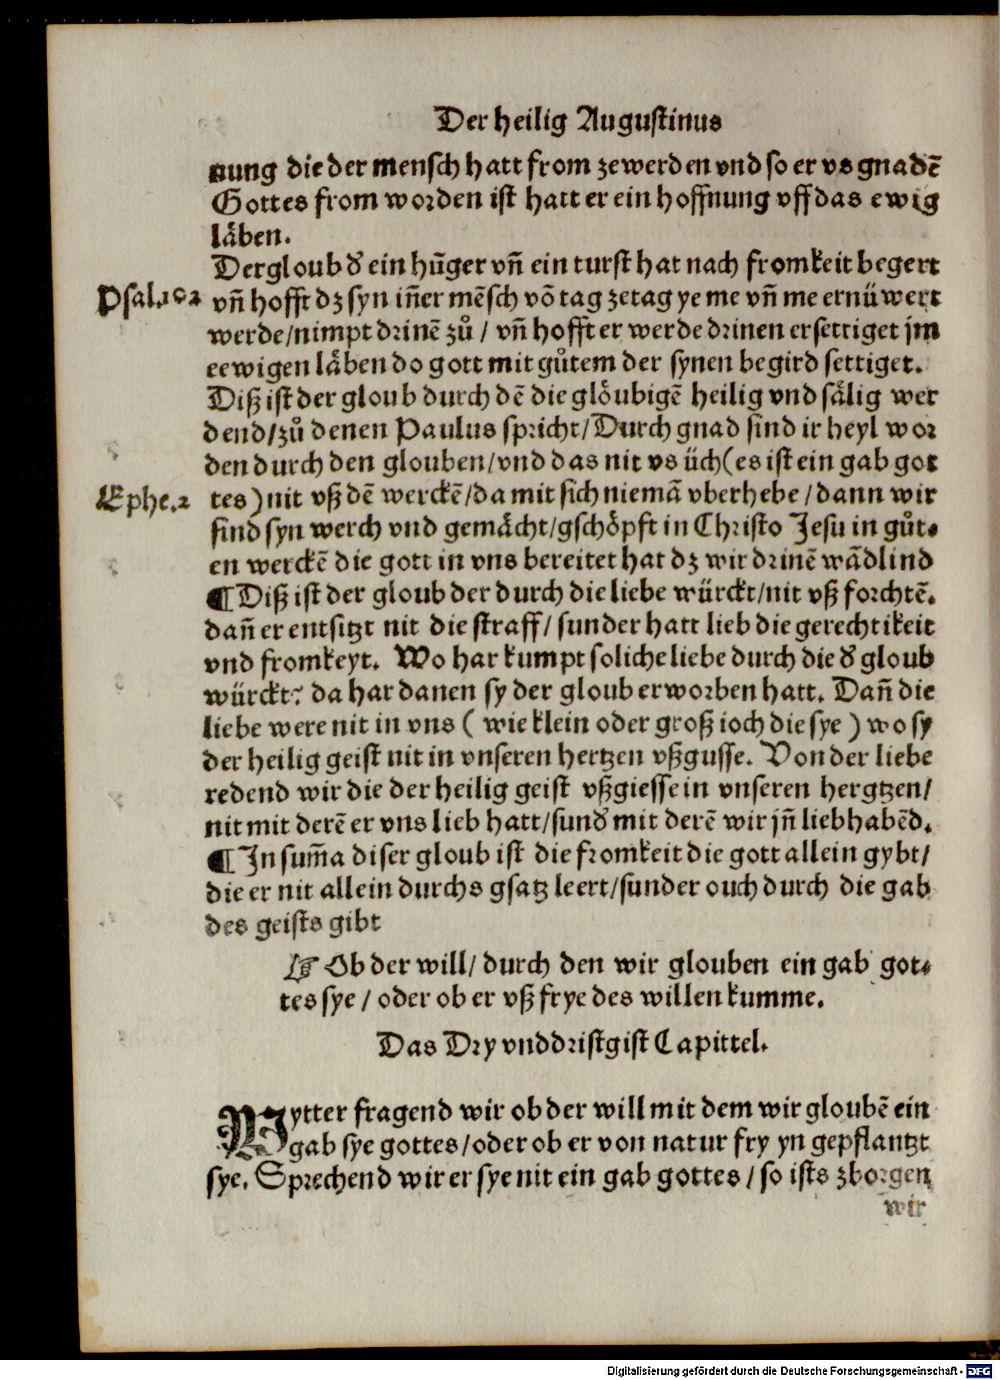 Der heilig Augustinus
nung die der mensch hatt from zewerden vnd so er vs gnadẽ
Gottes from worden ist hatt er ein hoffnung vff das ewig
läben.
Der gloub ď ein hũger vñ ein turst hat nach fromkeit begert
Psal.102 vñ hofft dz syn iñer mẽsch võ tag zetag ye me vñ me ernüwert
werde/nimpt drinẽ zů / vñ hofft er werde drinen ersettiget jm
eewigen läben do gott mit gůtem der synen begird settiget.
Diß ist der gloub durch dẽ die glöubigẽ heilig vnd sälig wer
dend/zů denen Paulus spricht/Durch gnad sind ir heyl wor
den durch den glouben/vnd das nit vs üch(es ist ein gab got
Ephe.2 tes)nit vß dẽ werckẽ/da mit sich niemã vberhebe/dann wir
sind syn werch vnd gemächt/gschöpft in Christo Jesu in gůt⸗
en werckẽ die gott in vns bereitet hat dz wir drinẽ wãdlind
¶Diß ist der gloub der durch die liebe würckt/nit vß forchtẽ.
dañ er entsitzt nit die straff/ sunder hatt lieb die gerechtikeit
vnd fromkeyt. Wo har kumpt soliche liebe durch die ď gloub
würckt? da har danen sy der gloub erworben hatt. Dañ die
liebe were nit in vns ( wie klein oder groß ioch die sye ) wo sy
der heilig geist nit in vnseren hertzen vßgusse. Von der liebe
redend wir die der heilig geist vßgiesse in vnseren hergtzen/
nit mit derẽ er vns lieb hatt/sunď mit derẽ wir jñ liebhabẽd.
¶In sum̃a diser gloub ist die fromkeit die gott allein gybt/
die er nit allein durchs gsatz leert/sunder ouch durch die gab
des geists gibt
☞Ob der will/ durch den wir glouben ein gab got⸗
tes sye / oder ob er vß frye des willen kumme.
Das Dry vnddristgist Capittel.
Wytter fragend wir ob der will mit dem wir gloubẽ ein
gab sye gottes/oder ob er von natur fry yn gepflantzt
sye. Sprechend wir er sye nit ein gab gottes / so ists zborgen
wir
Digitalisierung gefördert durch die Deutsche Forschungsgemeinschaft - DFG